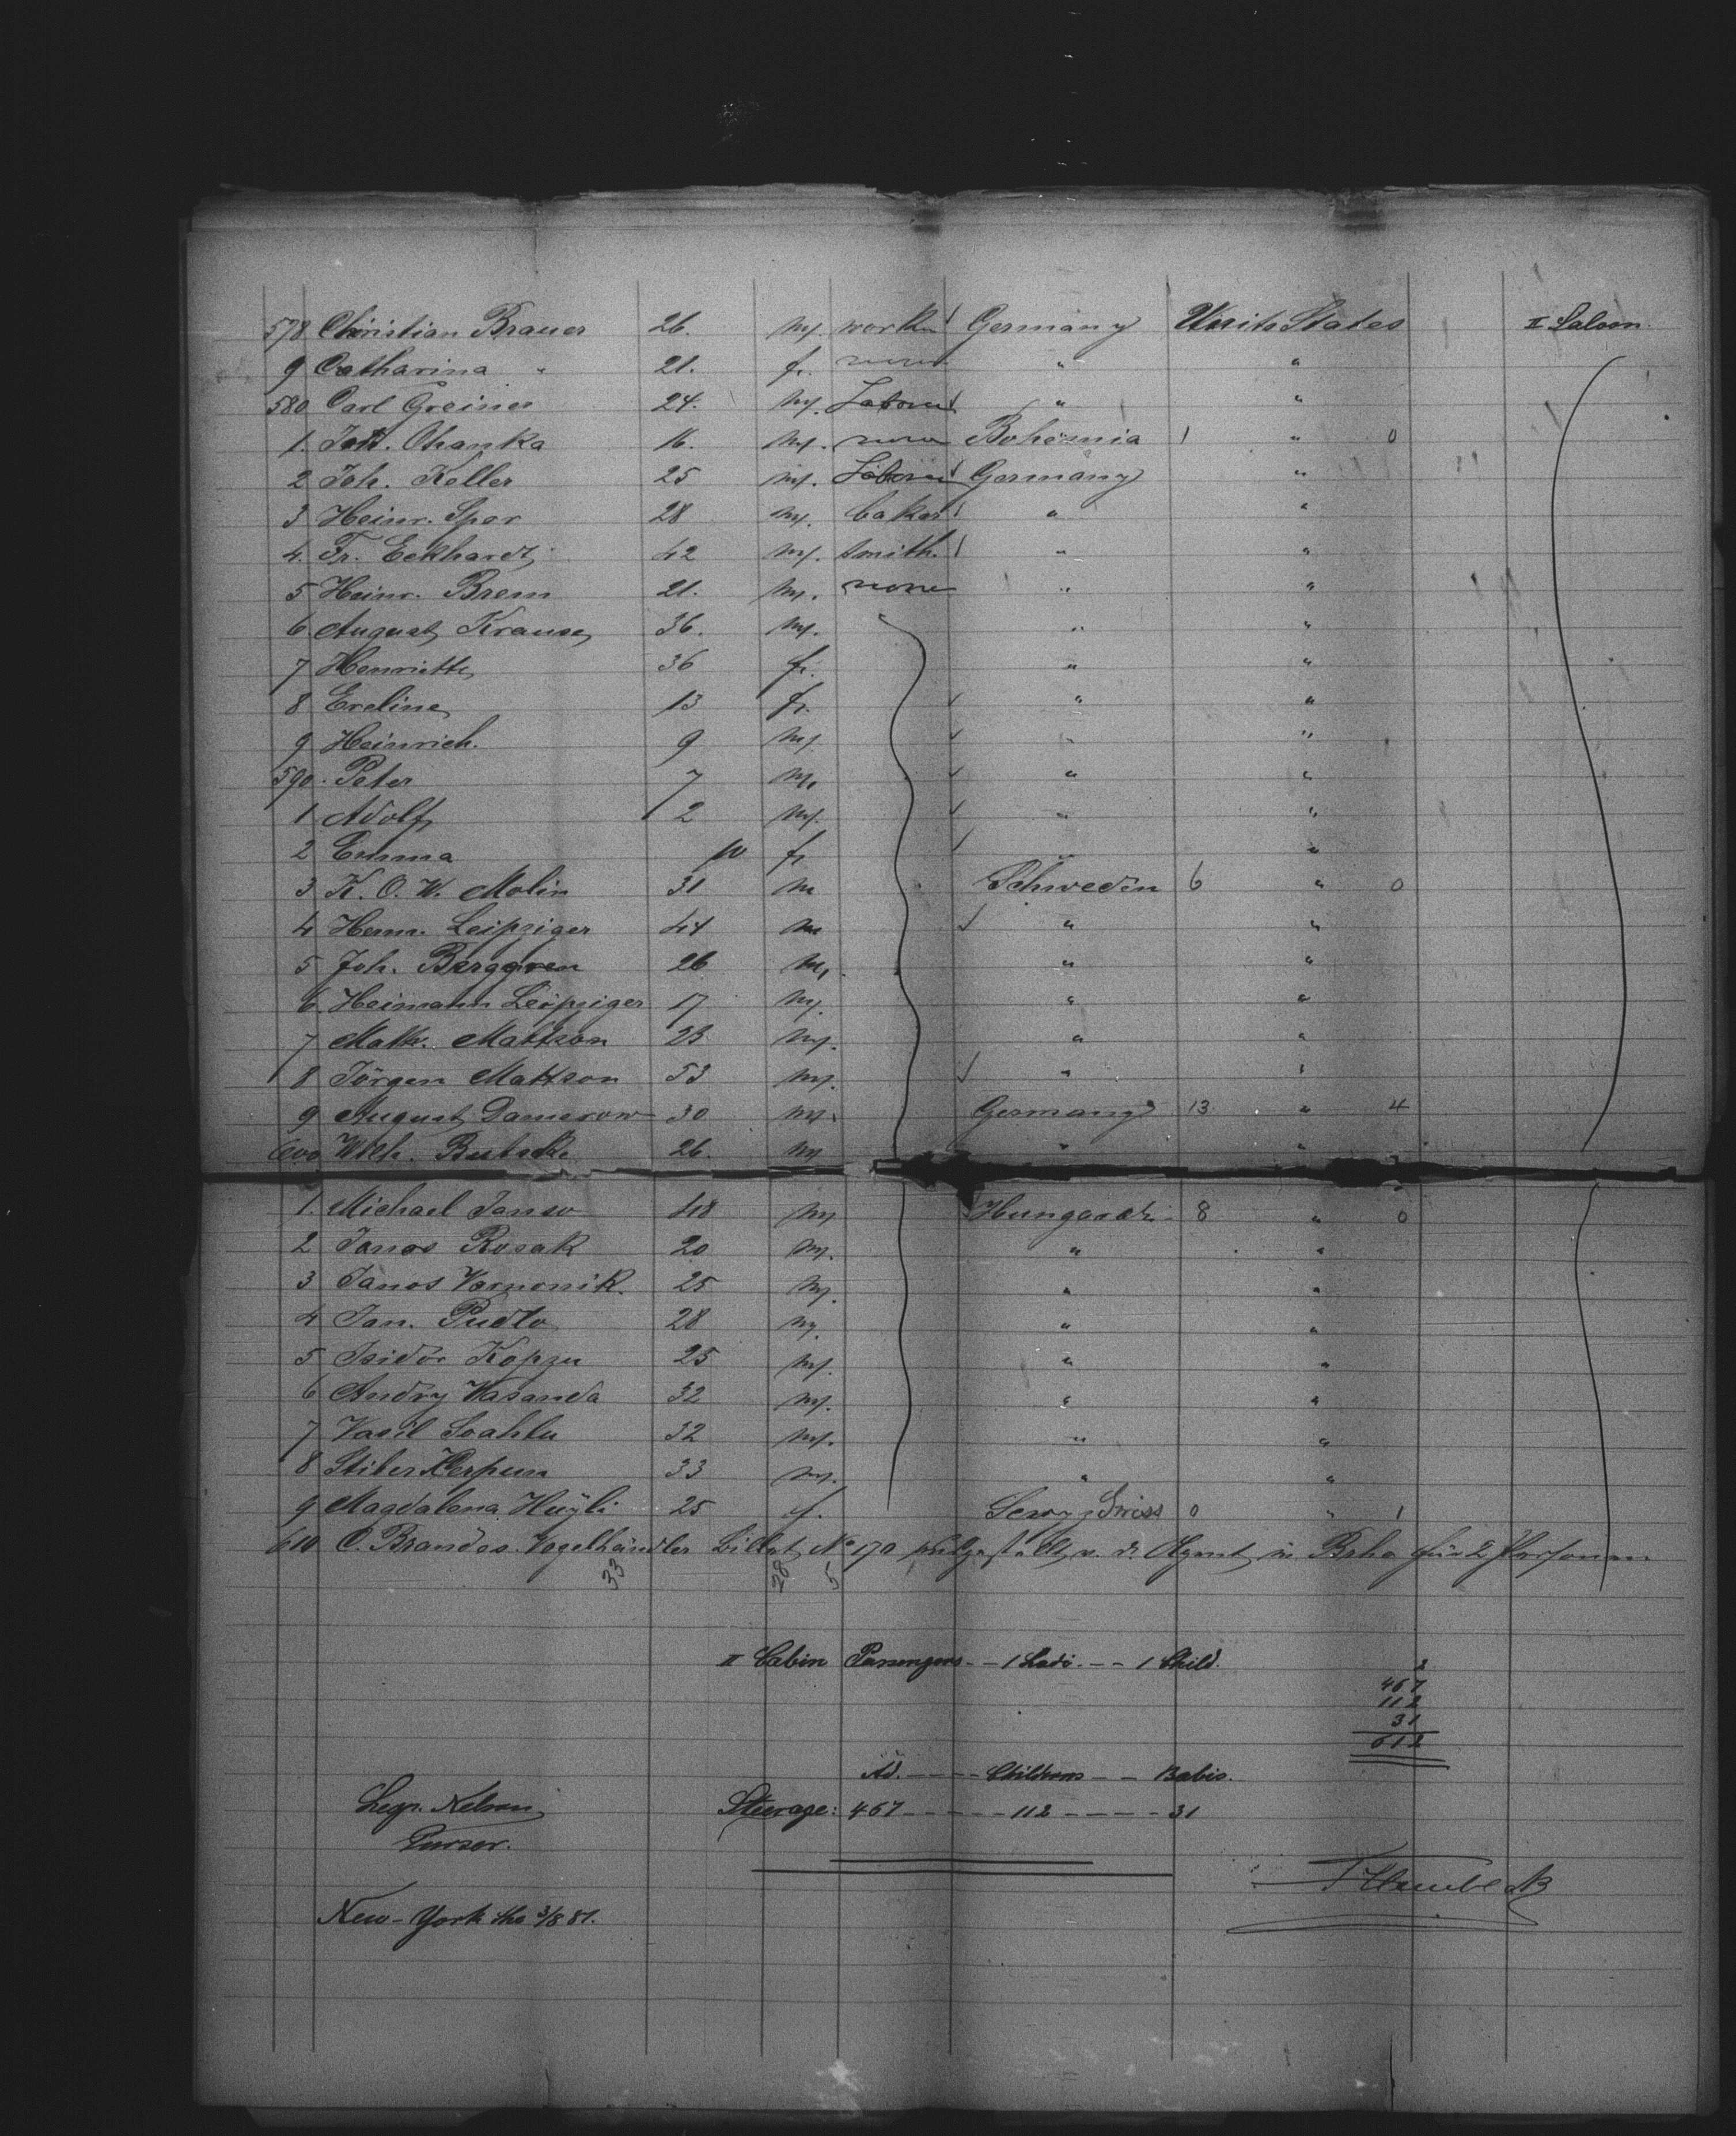 578 Christian Brauer 26. m. work. Germany Unite States II Saloon.
9 Catharina " 21. f. none " "
580 Carl Greiner 24. m. Labour " "
1. Joh. Chanka 16. m. none Bohemia 1 " 0
2 Joh. Keller 25 m. Labour Germany "
3 Heinr. Sper 28 m. baker " "
4. Fr. Eckhardt 42 m. smith. " "
5 Heinr. Brem 21. m. none " "
6 August Krause 36. m. " "
7 Henriette 36 f. " "
8 Eveline 13 f. " "
9 Heinrich. 9 m. " "
590. Peter 7 m. " "
1 Adolf 2 m. " "
2 Emma f. " "
3 K. O. W. Molin 31 m Schweden 6 " 0
4 Herm. Leipziger 44 m " "
5 Joh. Berggren 26 m. " "
6. Heimann Leipziger 17 m. " "
7 Math. Mattson 23 m. " "
8 Jörgen Mattson 53 m. " "
9 August Damerow 30 m. Germany 13 " 4
600 Wilh. 26. m " "
1. Michael Janso 48 m Hungarch 8 " 0
2 Janos Rosak 20 m. " "
3 Janos Varnonik. 25 m. " "
4 Jan. Pudlo 28 m. " "
5 Isidor Kopzu 25 m. " "
6 Andry Wasanda 32 m. " "
7 Vasil Soahlu 32 m. " "
8 33 m. " "
9 Magdalena Huÿli 25 f. Swiss 0 " 1
610 C. Brandes. Vogelhändler Billet No 170 v. d. Agent in für 2 Personen
33 28 5
II Cabin Passengers -- 1 Ladi --- 1 Child. 2
467
112
31
612
Ad. ---- Childrens --- Babis.
Steerage: 467 ----- 112 ----- 31
Nelson
Purser.
New-York the 3/8 81.